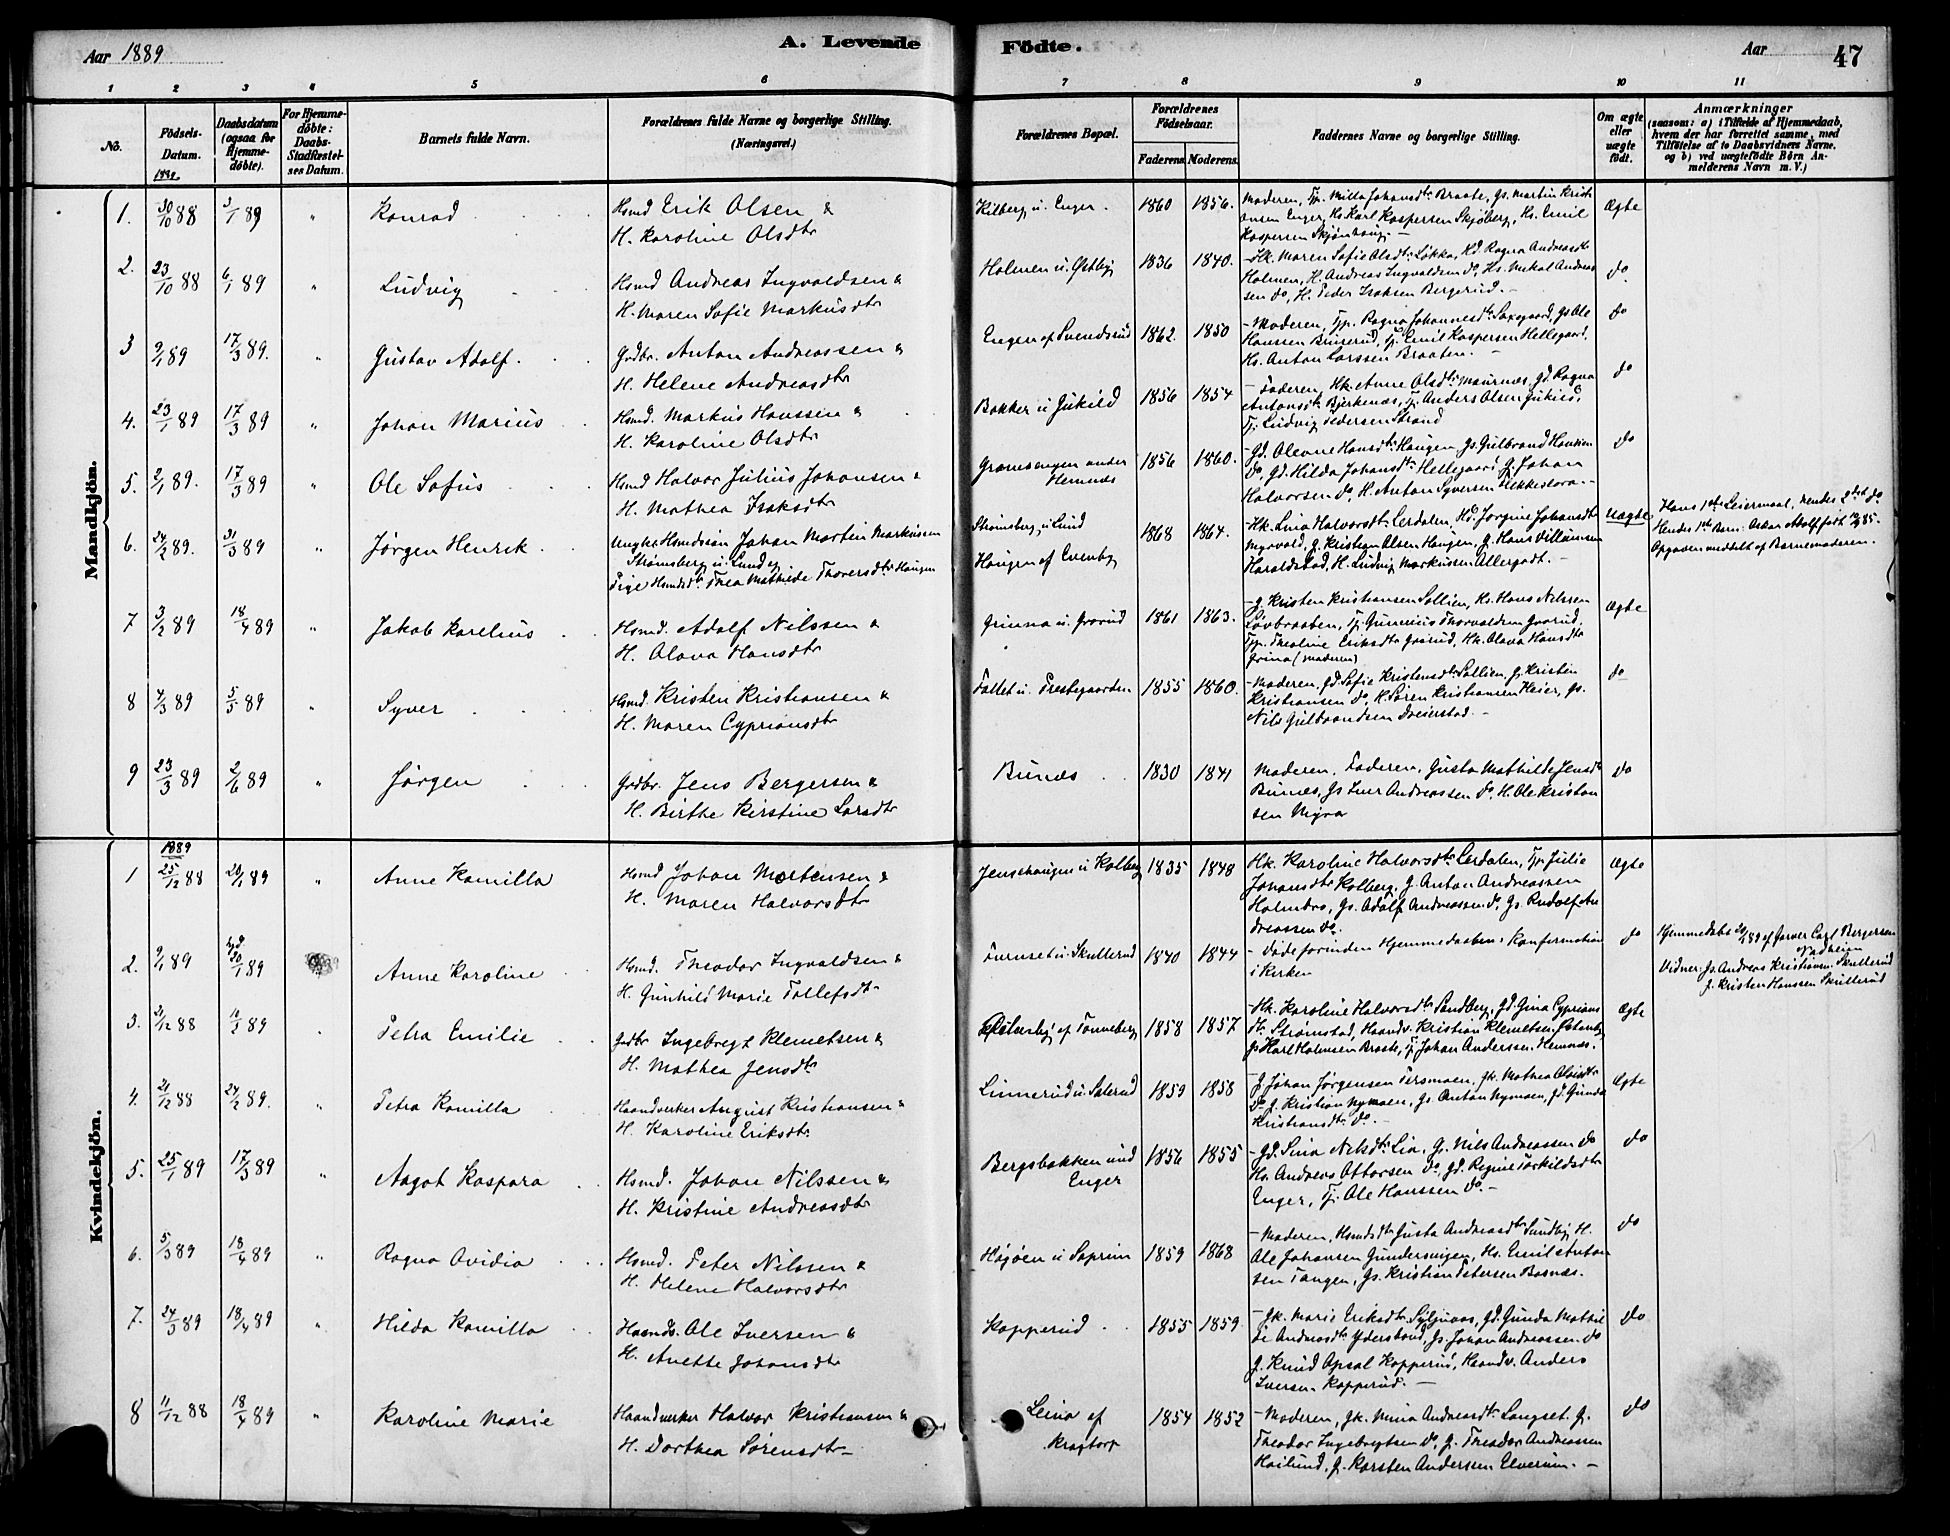 Aar 1889
A. Levende
Födte.
Aar
47
1 2 3 4 5 6 7 8 9 10 11
No.
Födsels-Datum.
Daabsdatum (ogsaa for Hjemmedöbte).
For Hjemmedöbte: Daabs-Stadfæstelses Datum.
Barnets fulde Navn.
Forældrenes fulde Navne og borgerlige Stilling. (Næringsvei.)
Forældrenes Bopæl.
Forældrenes Födselsaar.
Faderens
Moderens.
Faddernes Navne og borgerlige Stilling.
Om ægte eller uægte födt.
Anmærkninger
(saasom: a) i Tilfælde af Hjemmedaab,
hvem der har forrettet samme, med
Tilföielse af to Daabsvidners Navne,
og b) ved uægtefödte Börn An-
melderens Navn m. V.)
Mandkjön.
1. 30/10 88 3/1 89 " Konrad Hsmd Erik Olsen &
H. Karoline Olsdtr
Kilberg u. Enger. 1860 1856. Moderen, Tp. Milla Johansdtr Braate, Gs. Martin Kristi
ansen Enger, Hs Karl Kaspersen Skjøberg, Hs. Emil
Kaspersen Skjønhaug.—
Ægte
2. 23/10 88 6/1 89 " Ludvig Hsmd Andreas Ingvaldsen &
H. Maren Sofie Markusdtr
Holmen u. Østby 1836 1840. —Hk. Maren Sofie Olsdtr Løkka, Hd. Ragna Andreasdtr
Holmen, H. Andreas Ingvaldsen do, Hs. Mikal Andreas
sen do, H. Peder Isaksen Bergerud.—
do
3 9/1 89 17/3 89. " Gustav Adolf. Grdbr. Anton Andreassen &
H. Helene Andreasdtr
Engen af Svendsrud 1862. 1850 —Moderen, Tp. Ragna Johannesdtr Saxegaard, Gs Ole
Hanssen Buserud, Tj. Emil Kaspersen Hellegaard,
Hs. Anton Larssen Braaten.—
do
4. 23/1 89 17/3 89 " Johan Marius Hsmd. Markus Hanssen &
H. Karoline Olsdtr
Bakker u Jukild 1856 1854 —Faderen, Hk. Anne Olsdtr Maurnæs, Gd. Ragna
Antonsdtr Bjerkenæs, Tj. Anders Olsen Jukild,
Tj. Ludvig Pedersen Strand
do
5. 2/1 89. 17/3 89 " Ole Sofus Hsmd Halvor Julius Johansen &
H. Mathea Isaksdtr
Gramsengen under
Hemnæs
1856 1860. —Gd. Oleone Hansdtr Haugen, Gs. Gulbrand Hansen
do, Gd. Hilda Johansdtr Hellegaard, G. Johan
Halvorsen do, H. Anton Syversen
do
6. 24/2 89. 31/3 89 " Jørgen Henrik Ungkar Hsmdssøn Johan Martin Markussen
Strømsberg u. Lund og
Pige Hsmdsdtr Thea Mathilde Thoresdtr Haugen
Strømsberg u Lund
Haugen af Evenby
1868 1864. —Hk. Lina Halvorsdtr Lerdalen, Hd. Jørgine Johansdtr
Myrvold, G. Kristian Olsen Haugen, G. Hans Villumsen
Haraldstad, H. Ludvig Markussen Allergodt.—
Uægte
Hans 1ste Leiermaal, hendes 2det do.
Hendes 1ste Barn: Oskar Adolf født 85.
Opgaven meddelt af Barnemoderen.
7 3/2 89 18/4 89 " Jakob Karelius Hsmd. Adolf Nilssen &
H. Olava Hansdtr
Grinna u. Grorud 1861 1863. —G. Kristen Kristiansen Sollien, Hs. Hans Nilssen
Løvbraaten, Tj. Gunerius Thorvaldsen Grorud,
Tp. Theoline Eriksdtr Grorud, Hk. Olava Hansdtr
Grina (Moderen)
Ægte
8 4/3 89 5/5 89 " Syver Hsmd Kristen Kristiansen &
H. Maren Cypriansdtr
Fallet u. Prestegaarden 1855 1860. —Moderen, Gd. Sofie Kristensdtr Sollien, G. Kristen
Kristiansen do, H. Søren Kristiansen Heier, Gs.
Nils Gulbrandsen Dreierstad.—
do
9 23/3 89 2/6 89 " Jørgen Grdbr. Jens Bergersen &
H. Birthe Kirstine Larsdtr
Bunæs 1830 1841 Moderen, Faderen, Gusta Mathilde Jensdtr
Bunæs, Gs Iver Andreassen do, H. Ole Kristian
sen Nigra
do
Kvindekjön.
1889
1 25/12 88 20/1 89 " Anne Kamilla Hsmd Johan Mortensen &
H. Maren Halvorsdtr
Jenshaugen u Kolberg 1835 1848 Hk. Karoline Halvorsdtr Lerdalen, Tp. Julie
Johansdtr Kolberg, G. Anton Andreassen
Holmbro, Gs. Adolf Andreassen do, Gs. Rudolf An
dreassen do.
Ægte
2. 9/1 89 20/1 89 Anne Karoline Hsmd. Theodor Ingvaldsen &
H. Gunhild Marie Tollefsdtr
Furuset u. Skullerud 1840 1844 —Døde forinden Hjemmedaabens Konfirmation
i Kirken
do
Hjemmedøbt 20/1 89 af Garver Carl Bergersen
Vidner: Gs. Andreas Kristiansen Skullerud
G. Kristen Hanssen Skullerud
3. 21/12 88 11/3 89 Petra Emilie Grdbr Ingebregt Klemetsen &
H. Mathea Jensdtr
af Tonneberg 1858 1857 —Hk. Karoline Halvorsdtr Sandberg, Gd. Gina Cyprians
dtr Strømstad, Haandv. Kristian Klemetsen
Gs Karl Halvorsen Braate, Tj. Johan Anderssen Hemnæs.
Ægte
4. 21/12 88 24/2 89. " Petra Kamilla Haandverker August Kristiansen &
H. Karoline Eriksdtr
Linnerud u. Sølerud 1859 1858 —G. Johan Jørgensen Tersmoen, Gk. Mathea Olsdtr
do, G. Kristian Nymoen, Gs. Anton Nymoen, Gd. Gunda
Kristiansdtr do.—
Ægte
5. 25/1 89 17/3 89 " Aagot Kaspara Hsmd. Johan Nilssen &
H. Kristine Andreasdtr
Bergsbakken und
Enger
1856 1855 —Gd. Lina Nilsdtr Lia, G. Nils Andreassen do
Hs. Andreas Ottersen do, Gd. Regine Torkildsdtr
Enger, Tj. Ole Hanssen do.—
do
6. 5/3 89 18/4 89 " Ragna Ovidia Hsmd. Peter Nilssen &
H. Helene Halvorsdtr
Høgøen u Soprim 1859 1868 —Moderen, Hsmdsdtr Gusta Andreasdtr Sundby, H.
Ole Johansen Gundersvigen, Hs. Emil Anton
sen Tangen, Gs. Kristian Petersen Bosnæs.
do
7. 24/3 89 18/4 89 " Hilda Kamilla Haandv. Ole Iversen &
H. Anette Johansdtr
Kopperud 1855 1859. —Gk. Marie Eriksdtr Syljuaas, Gd. Gunda Mathil
de Andreasdtr Yderstad, Gs. Johan Andreassen do
G. Knud Opsal Kopperud, Haandv. Anders
Iversen Kopperud.—
do
8 11/12 88 18/4 89 " Karoline Marie Haandverker Halvor Kristiansen &
H. Dorthea Sørensdtr
Leina af
Kragtorp
1854 1852 —Moderen, Gk. Mina Andreasdtr Langset, G.
Theodor Ingebregtsen do, G. Theodor Andreassen
Hoilund, G. Karsten Andersen Elverum.—
do